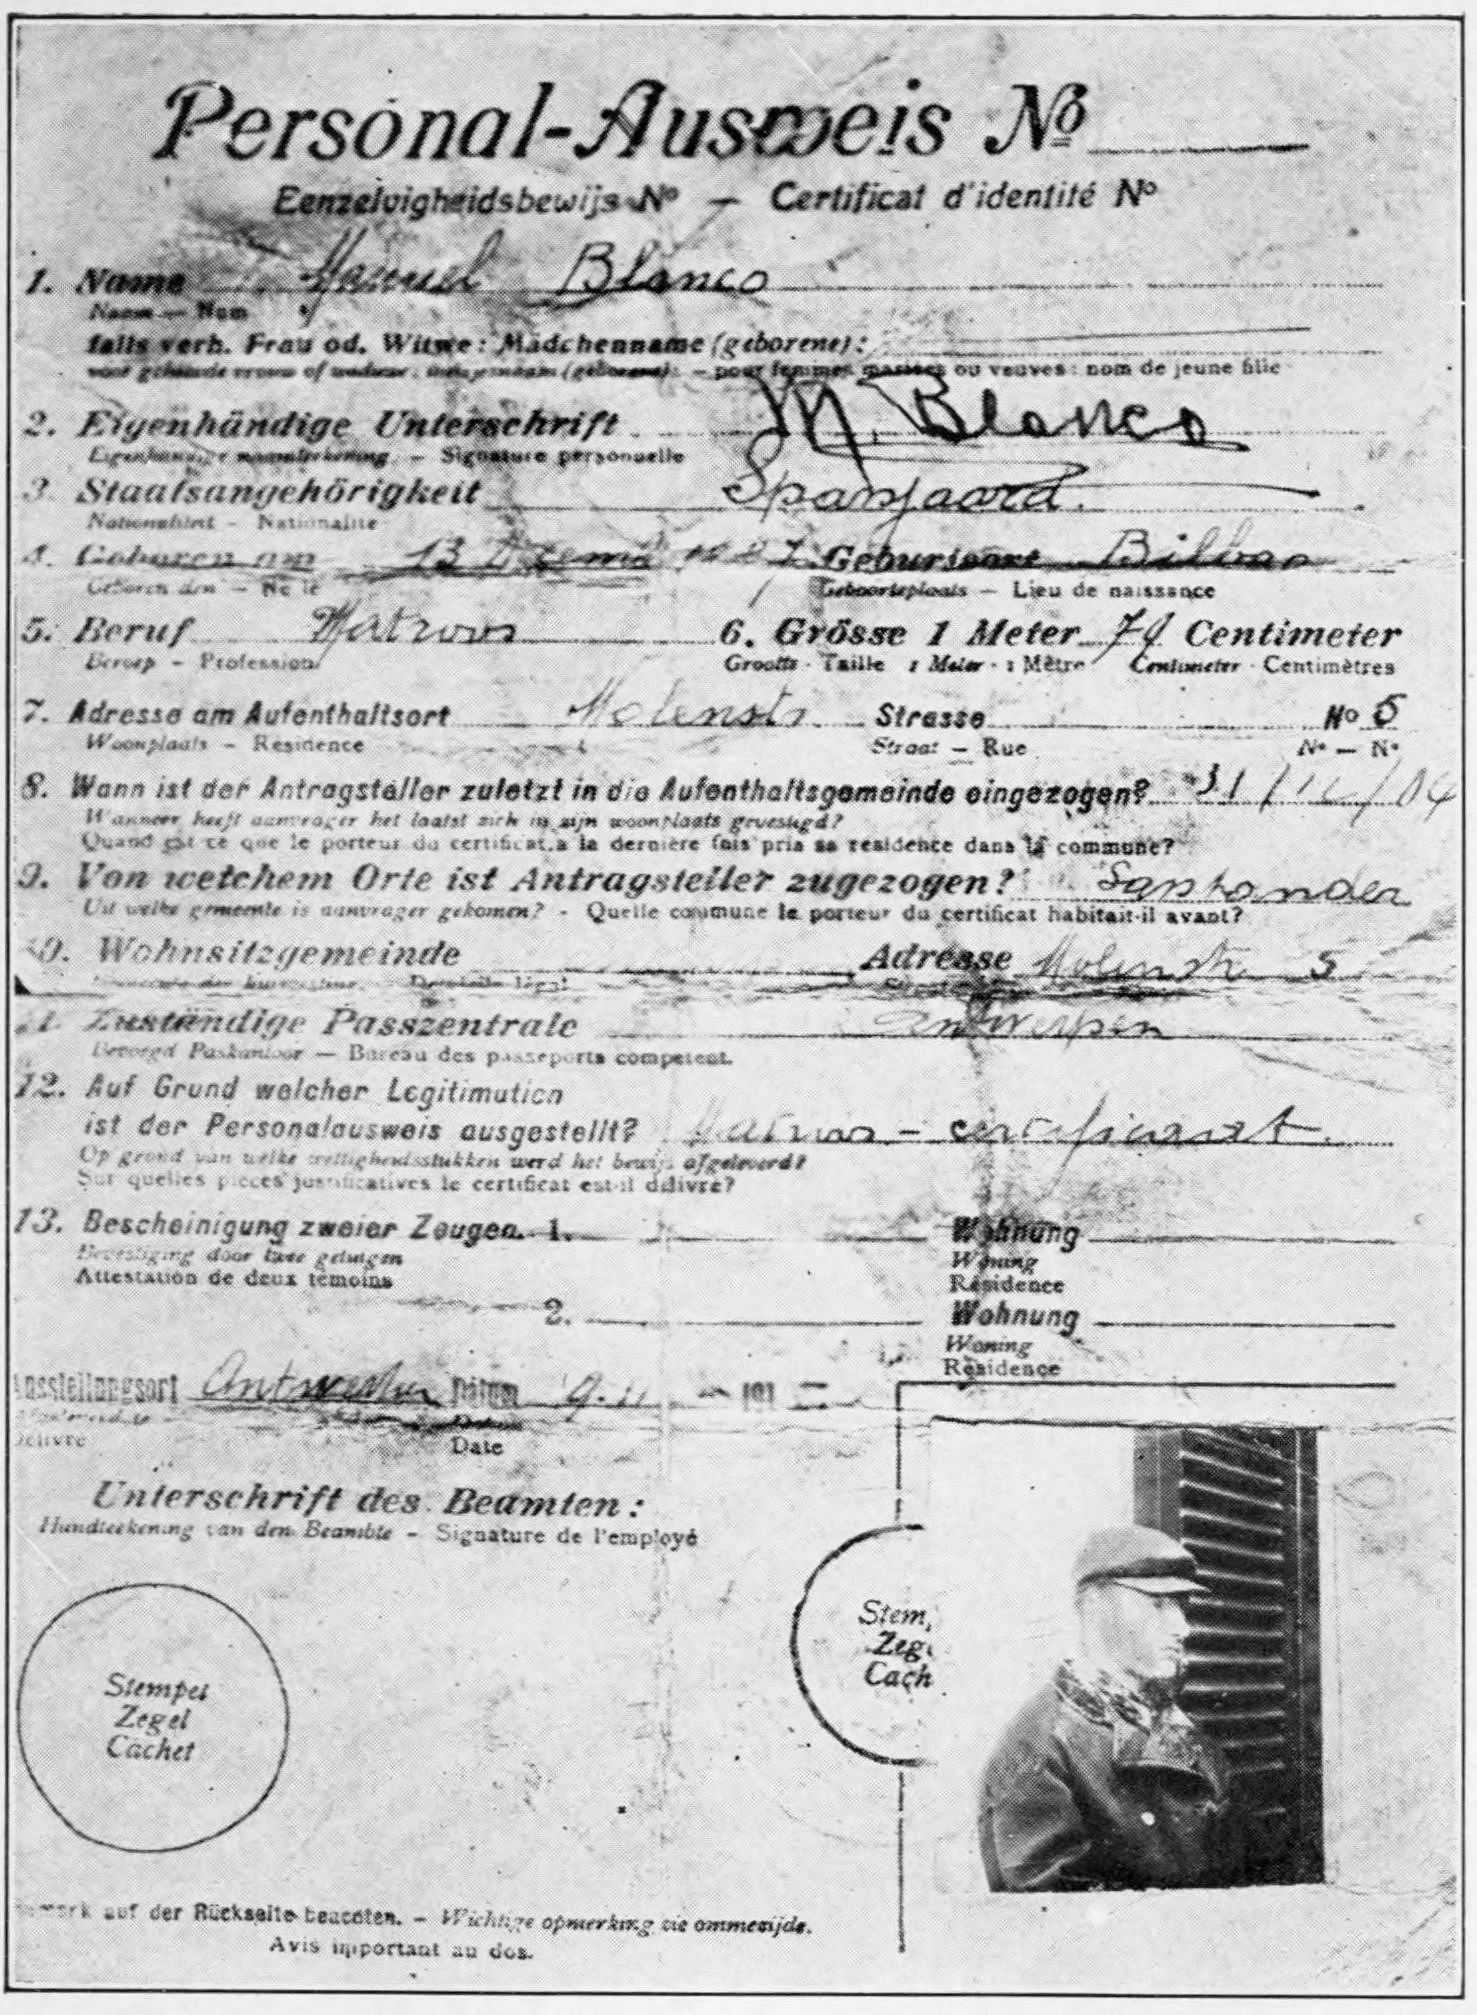 Personal-Ausweis No
Eenzelvigheidsbewijs No – Certificat d'identité No
1. Name Manuel Blanco
Naam – Nom
falls verh. Frau od. Witwe: Mädchenname (geborene):
pour femmes mariées ou veuves: nom de jeune fille
2. Eigenhändige Unterschrift M. Blanco
Eigenhandige naamteekening. – Signature personuelle
3. Staatsangehörigkeit Spanjaard.
Nationaliteit – Nationalite
4. Geboren am 13 Geburtsort Bilbao
Geboren den – Né le Geboorteplaats – Lieu de naissance
5. Beruf Matroos 6. Grösse 1 Meter Centimeter
Beroep – Profession Grootte - Taille 1 Meter - 1 Mètre Centimeter - Centimètres
7. Adresse am Aufenthaltsort Molenstr Strasse No 5
Woonplaats – Résidence Straat – Rue No – No
8. Wann ist der Antragsteller zuletzt in die Aufenthaltsgemeinde eingezogen?
Wanneer heeft aanvrager het laatst zich in zijn woonplaats gevestigd?
Quand est ce que le porteur du certificat a la dernière fois pris sa résidence dans la commune?
9. Von welchem Orte ist Antragsteller zugezogen? Santander
Uit welke gemeente is aanvrager gekomen? - Quelle commune le porteur du certificat habitait-il avant?
10. Wohnsitzgemeinde Adresse Molenstr 5
Domicile légal
11. Zuständige Passzentrale Antwerpen
Bevoegd Paskantoor — Bureau des passeports compétent.
12. Auf Grund welcher Legitimation
ist der Personalausweis ausgestellt? Matroos – certificaat.
Op grond van welke wettigheidsstukken werd het bewijs afgeleverd?
Sur quelles pièces justificatives le certificat est-il délivré?
13. Bescheinigung zweier Zeugen. 1. Wohnung
Bevestiging door twee getuigen Woning
Attestation de deux témoins Résidence
2. Wohnung
Woning
Résidence
Ausstellungsort Antwerpen Datum 9. 11 191
Délivré Date
Unterschrift des Beamten:
Handteekening van den Beambte – Signature de l'employé
Stem
Zeg
Cach
Stempel
Zegel
Cachet
auf der Rückseite beachten. – Wichtige opmerking zie ommezijde.
Avis important au dos.